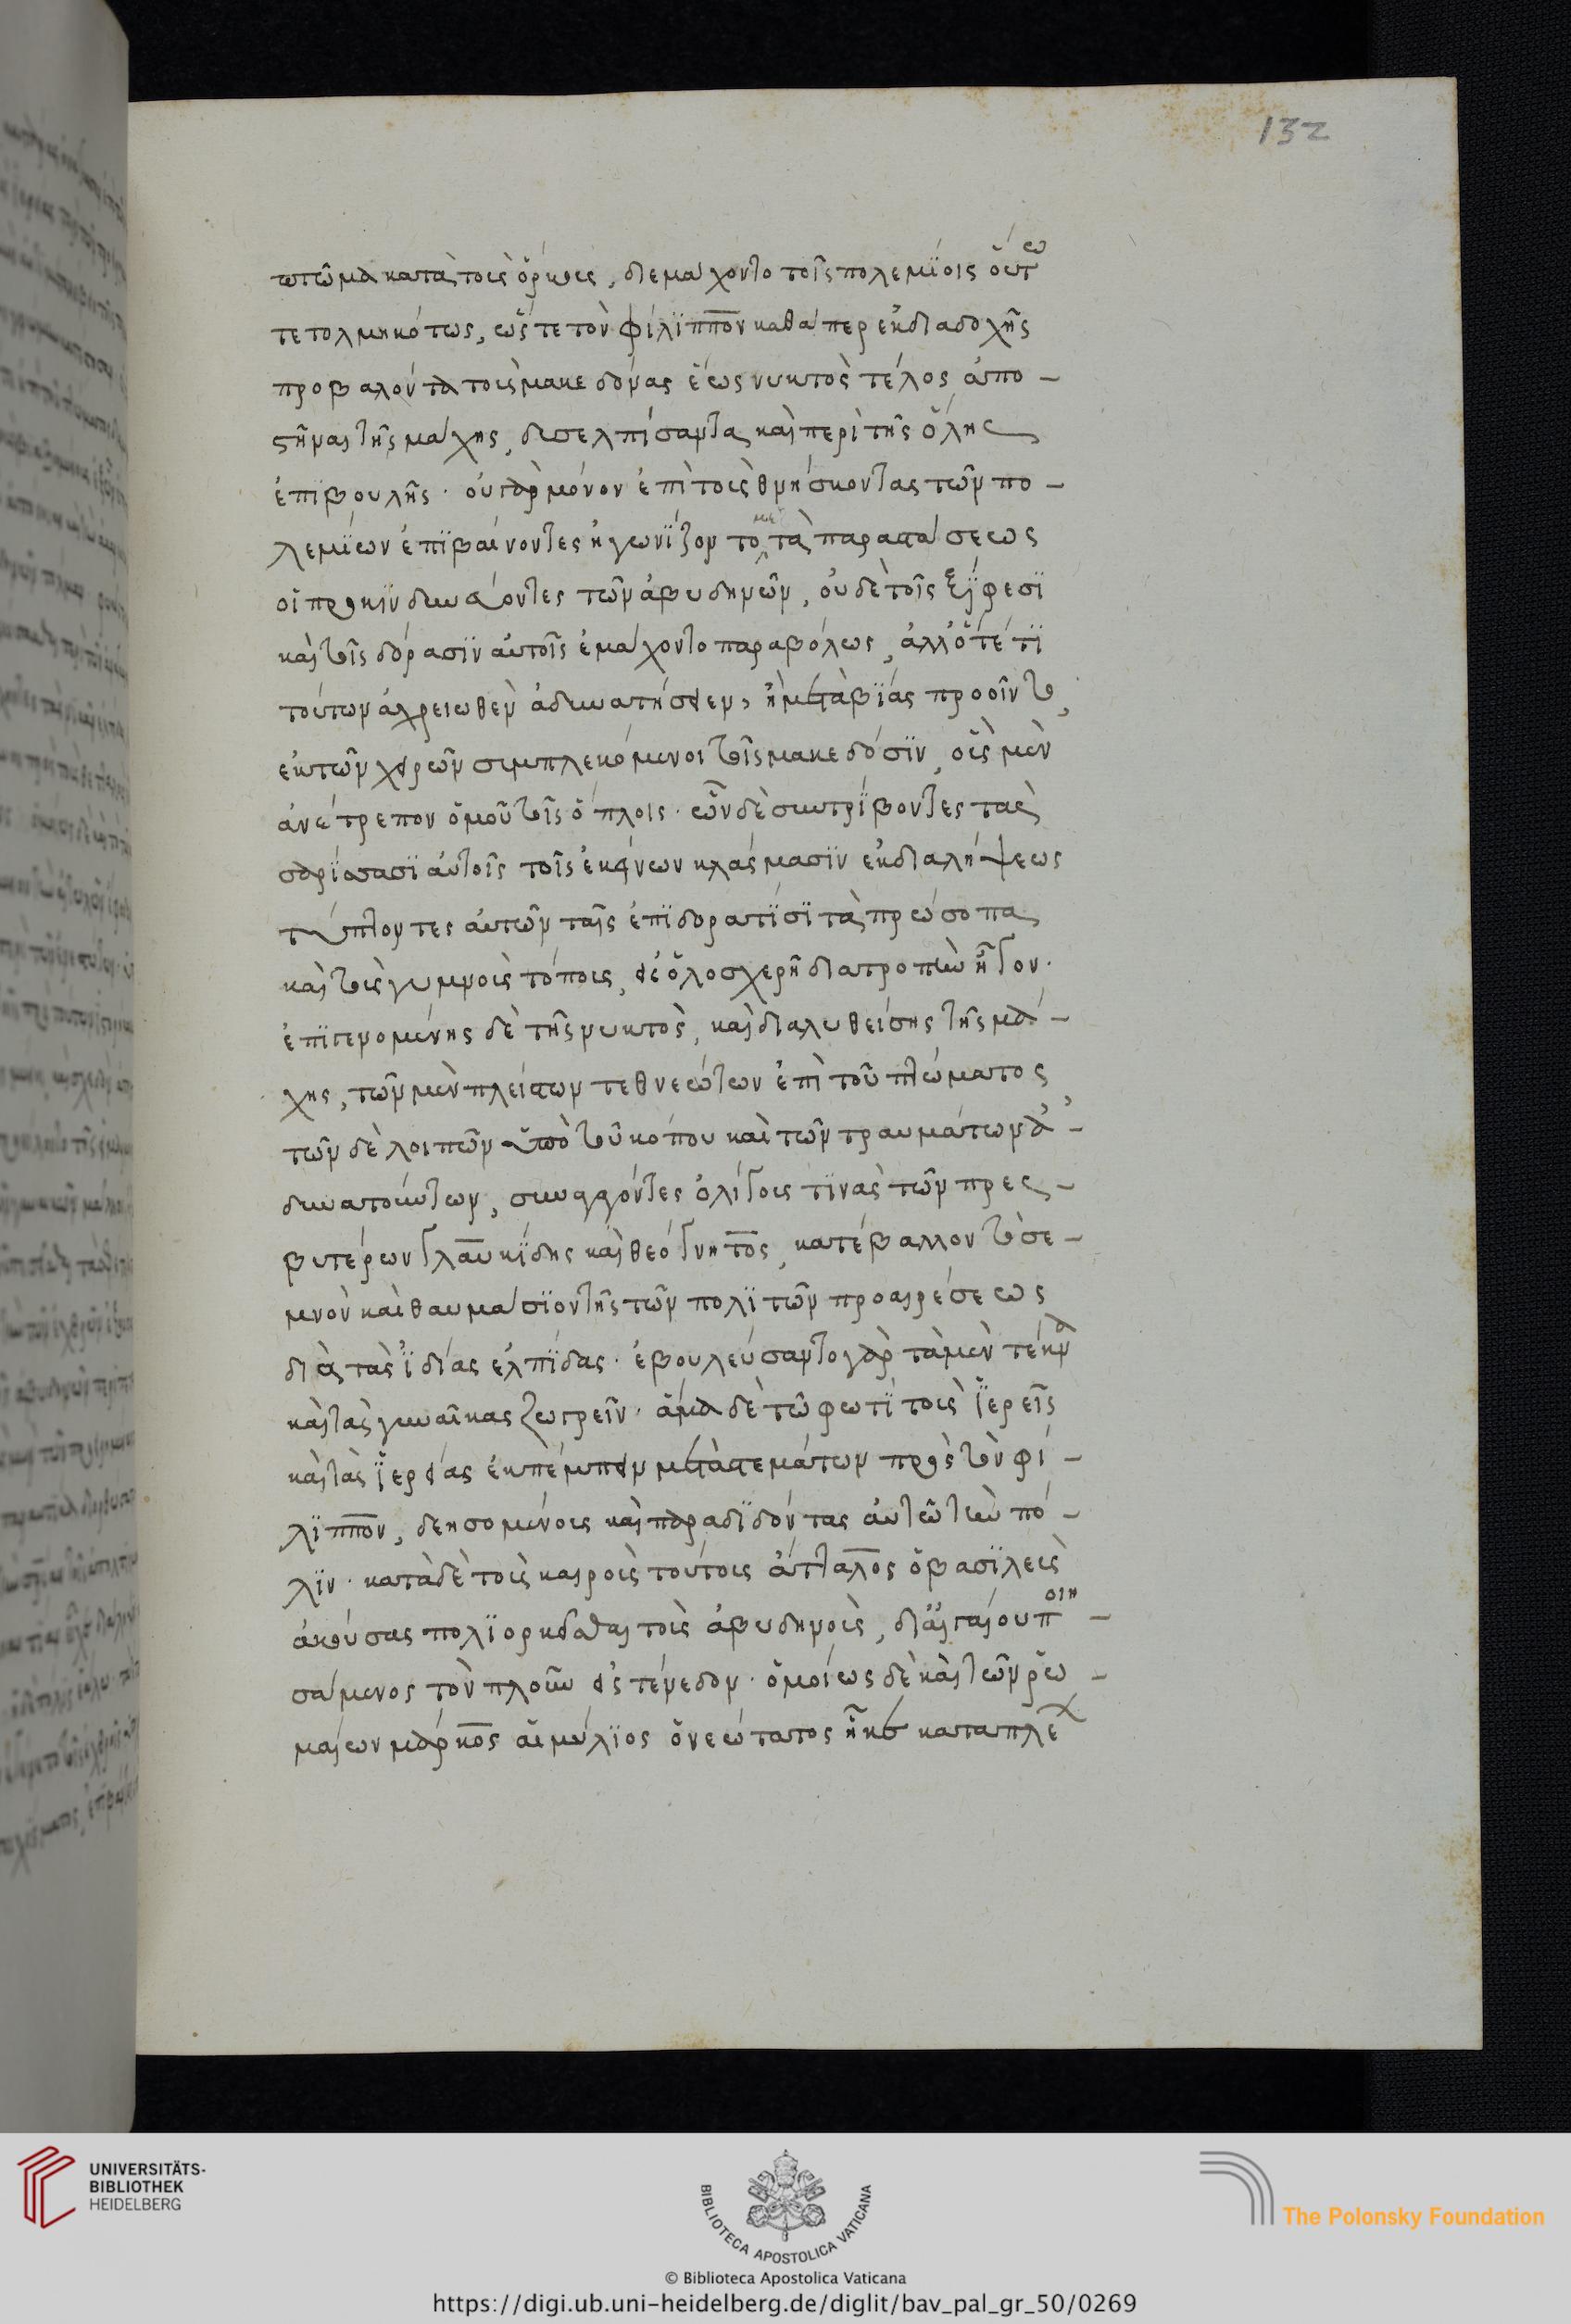 132
πτῶμα κατὰ τοὺς ὅρκους, διεμάχοντο τοῖς πολεμίοις οὕτω
τετολμηκότως, ὥστε τὸν φίλιππον καθάπερ ἐκ διαδοχῆς
προβαλόντα τοὺς μακεδόνας ἕως νυκτὸς τέλος ἀπο-
στῆναι τῆς μάχης, δυσελπίσαντα καὶ περὶ τῆς ὅλης
ἐπιβουλῆς. οὐ γὰρ μόνον ἐπὶ τοὺς θνήσκοντας τῶν πο-
λεμίων ἐπιβαίνοντες ἠγωνίζον το με τὰ παραστάσεως
οἱ προκινδυνεύοντες τῶν ἀβυδηνῶν, οὐδὲ τοῖς ξίφεσι
καὶ τοῖς δόρασιν αὐτοῖς ἐμάχοντο παραβόλως, ἀλλ' ὅτέ τι
τούτων ἀχρειωθὲν ἀδυνατήσειεν, ἢ μετὰ βίας προοῖντο,
ἐκ τῶν χειρῶν συμπλεκόμενοι τοῖς μακεδόσιν, οὓς μὲν
ἀνέτρεπον ὁμοῦ τοῖς ὅπλοις. ὧν δὲ συντρίβοντες τὰς
σαρίσασι αὐτοῖς τοῖς ἐκείνων κλάσμασιν ἐκ διαλήψεως
τύπτοντες αὐτῶν ταῖς ἐπιδορατίσι τὰ πρόσωπα
καὶ τοὺς γυμνοὺς τόπους, εἰς ὁλοσχερῆ διατροπὴν ἦγον.
ἐπιγενομένης δὲ τῆς νυκτὸς, καὶ διαλυθείσης τῆς μά-
χης, τῶν μὲν πλείστων τεθνεώτων ἐπὶ τοῦ πτώματος,
τῶν δὲ λοιπῶν ὑπὸ τοῦ κόπου καὶ τῶν τραυμάτων ἀ-
δυνατούντων, συναγαγόντες ὀλίγους τινὰς τῶν πρεσ-
βυτέρων γλαυκίδης καὶ θεόγνητος, κατέβαλλον τὸ σε-
μνὸν καὶ θαυμάσιον τῆς τῶν πολιτῶν προαιρέσεως
διὰ τὰς ἰδίας ἐλπίδας. ἐβουλεύσαντο γὰρ τὰ μὲν τέκνα
καὶ τὰς γυναῖκας ζωγρεῖν. ἅμα δὲ τῷ φωτὶ τοὺς ἱερεῖς
καὶ τὰς ἱερείας ἐκπέμπειν μετὰ στεμάτων πρὸς τὸν φί-
λιππον, δεησομένους καὶ παραδιδόντας αὐτῷ τὴν πό-
λιν. κατὰ δὲ τοὺς καιροὺς τούτους ἄτταλος ὁ βασιλεὺς
ἀκούσας πολιορκεῖσθαι τοὺς ἀβυδηνοὺς, δι' αἰγαίου ποιη-
σάμενος τὸν πλοῦν εἰς τένεδον. ὁμοίως δὲ καὶ τῶν ῥω-
μαίων μάρκος αἰμύλιος ὁ νεώτατος ἧκε καταπλέχ
UNIVERSITÄTS-
BIBLIOTHEK
HEIDELBERG
BIBLIOTECA APOSTOLICA VATICANA
The Polonsky Foundation
© Biblioteca Apostolica Vaticana
https://digi.ub.uni-heidelberg.de/diglit/bav_pal_gr_50/0269